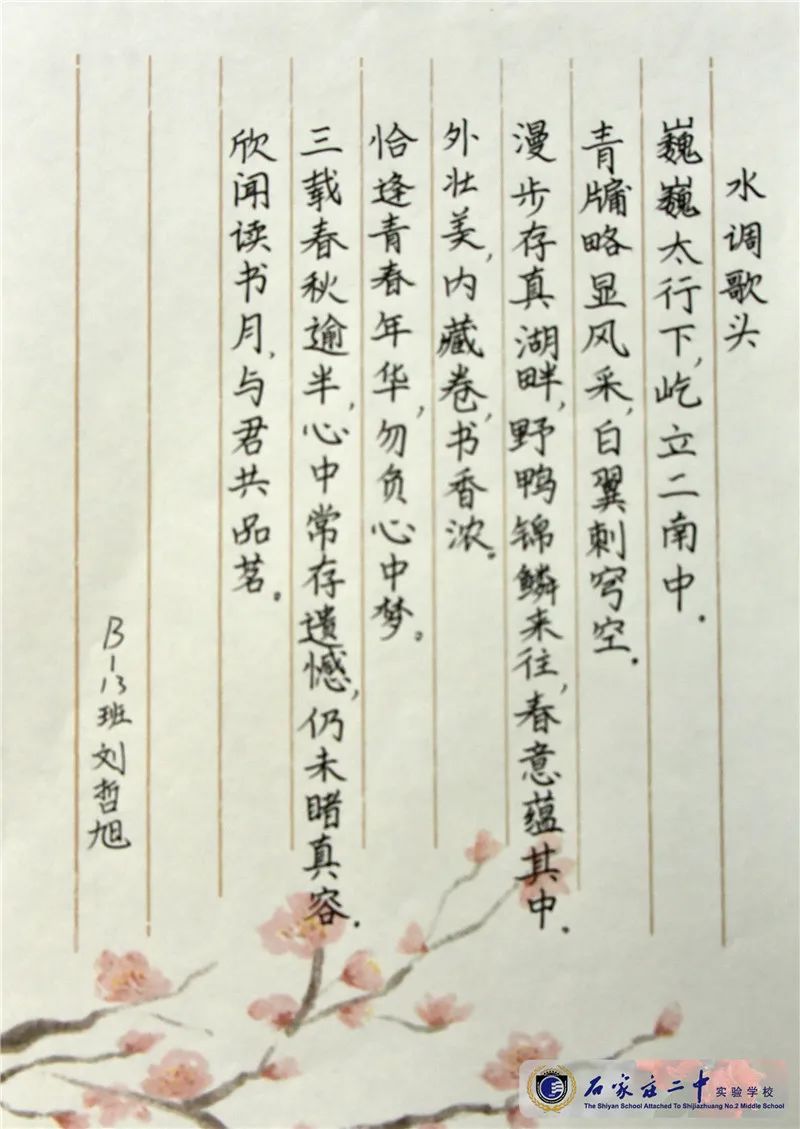 水调歌头
巍巍太行下,屹立二南中.
青牖略显风采,白翼刺穹空.
漫步存真湖畔,野鸭锦鳞来往,春意蕴其中.
外壮美,内藏卷,书香浓.
恰逢青春年华,勿负心中梦.
三载春秋逾半,心中常存遗憾,仍未睹真容.
欣闻读书月,与君共品茗.
B-13班刘哲旭
石家庄二中实验学校
The Shiyan School Attached To Shijiazhuang No.2 Middle School